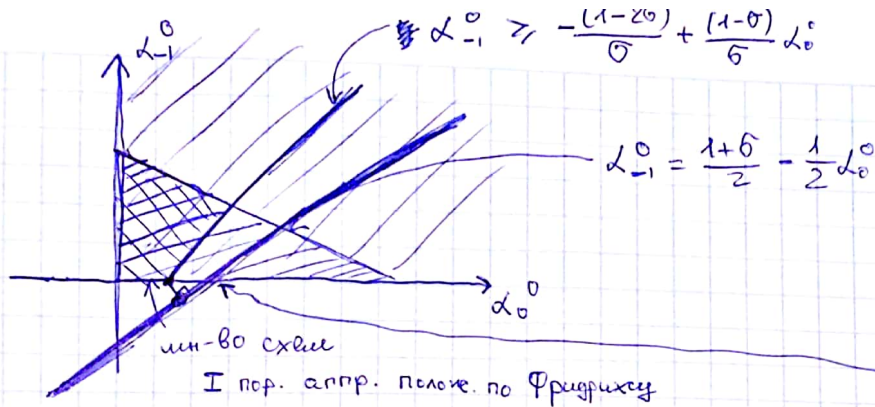 α₋₁⁰ ≥ -(1-2σ)/σ + (1-σ)/σ α₀⁰
α₋₁⁰
α₋₁⁰ = (1+σ)/2 - 1/2 α₀⁰
α₀⁰
мн-во схем
I пор. аппр. полож. по Фридрихсу